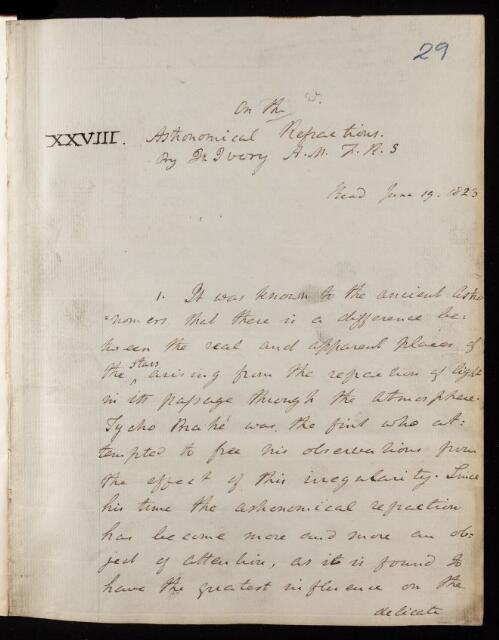 29
On the
XXVIII. Astronomical Refractions.
By Ja Ivory A.M. F.R.S
Read June 19. 1823
1. It was known to the ancient Astro
=nomers that there is a difference be=
tween the real and apparent places of
the stars arising from the refraction of light
in its passage through the Atmosphere.
Tycho Brahé was the first who at:
tempted to free his observations from
the effect of this irregularity. Since
his time the astronomical refraction
has become more and more an ob=
ject of attention, as it is found to
have the greatest influence on the
delicate